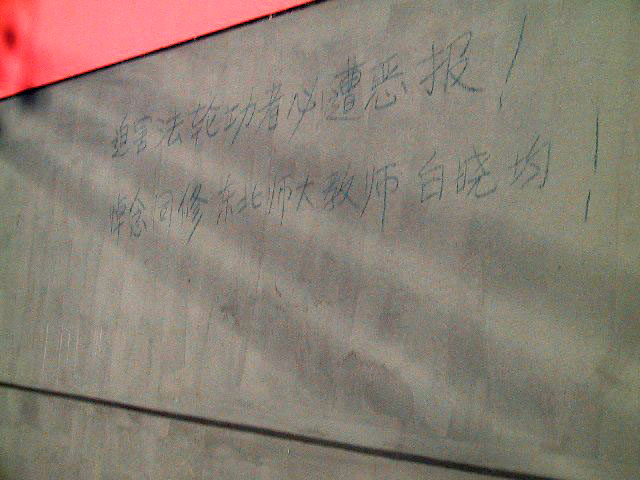 迫害法轮功者必遭恶报！
悼念同修东北师大教师白晓均！